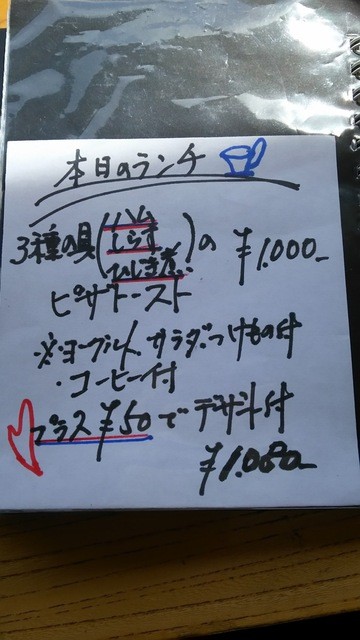 本日のランチ
ハム
しらす
3種の具( ひじき煮 )の ¥1.000-
ピザトースト
※ヨーグルト、サラダ、つけもの付
・コーヒー付
プラス¥50でデザート付